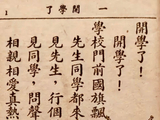 一 開學了
開學了！
開學了！
學校門前國旗飄
先生同學都來
見先生，行個
見同學，問聲
相親相愛真熱